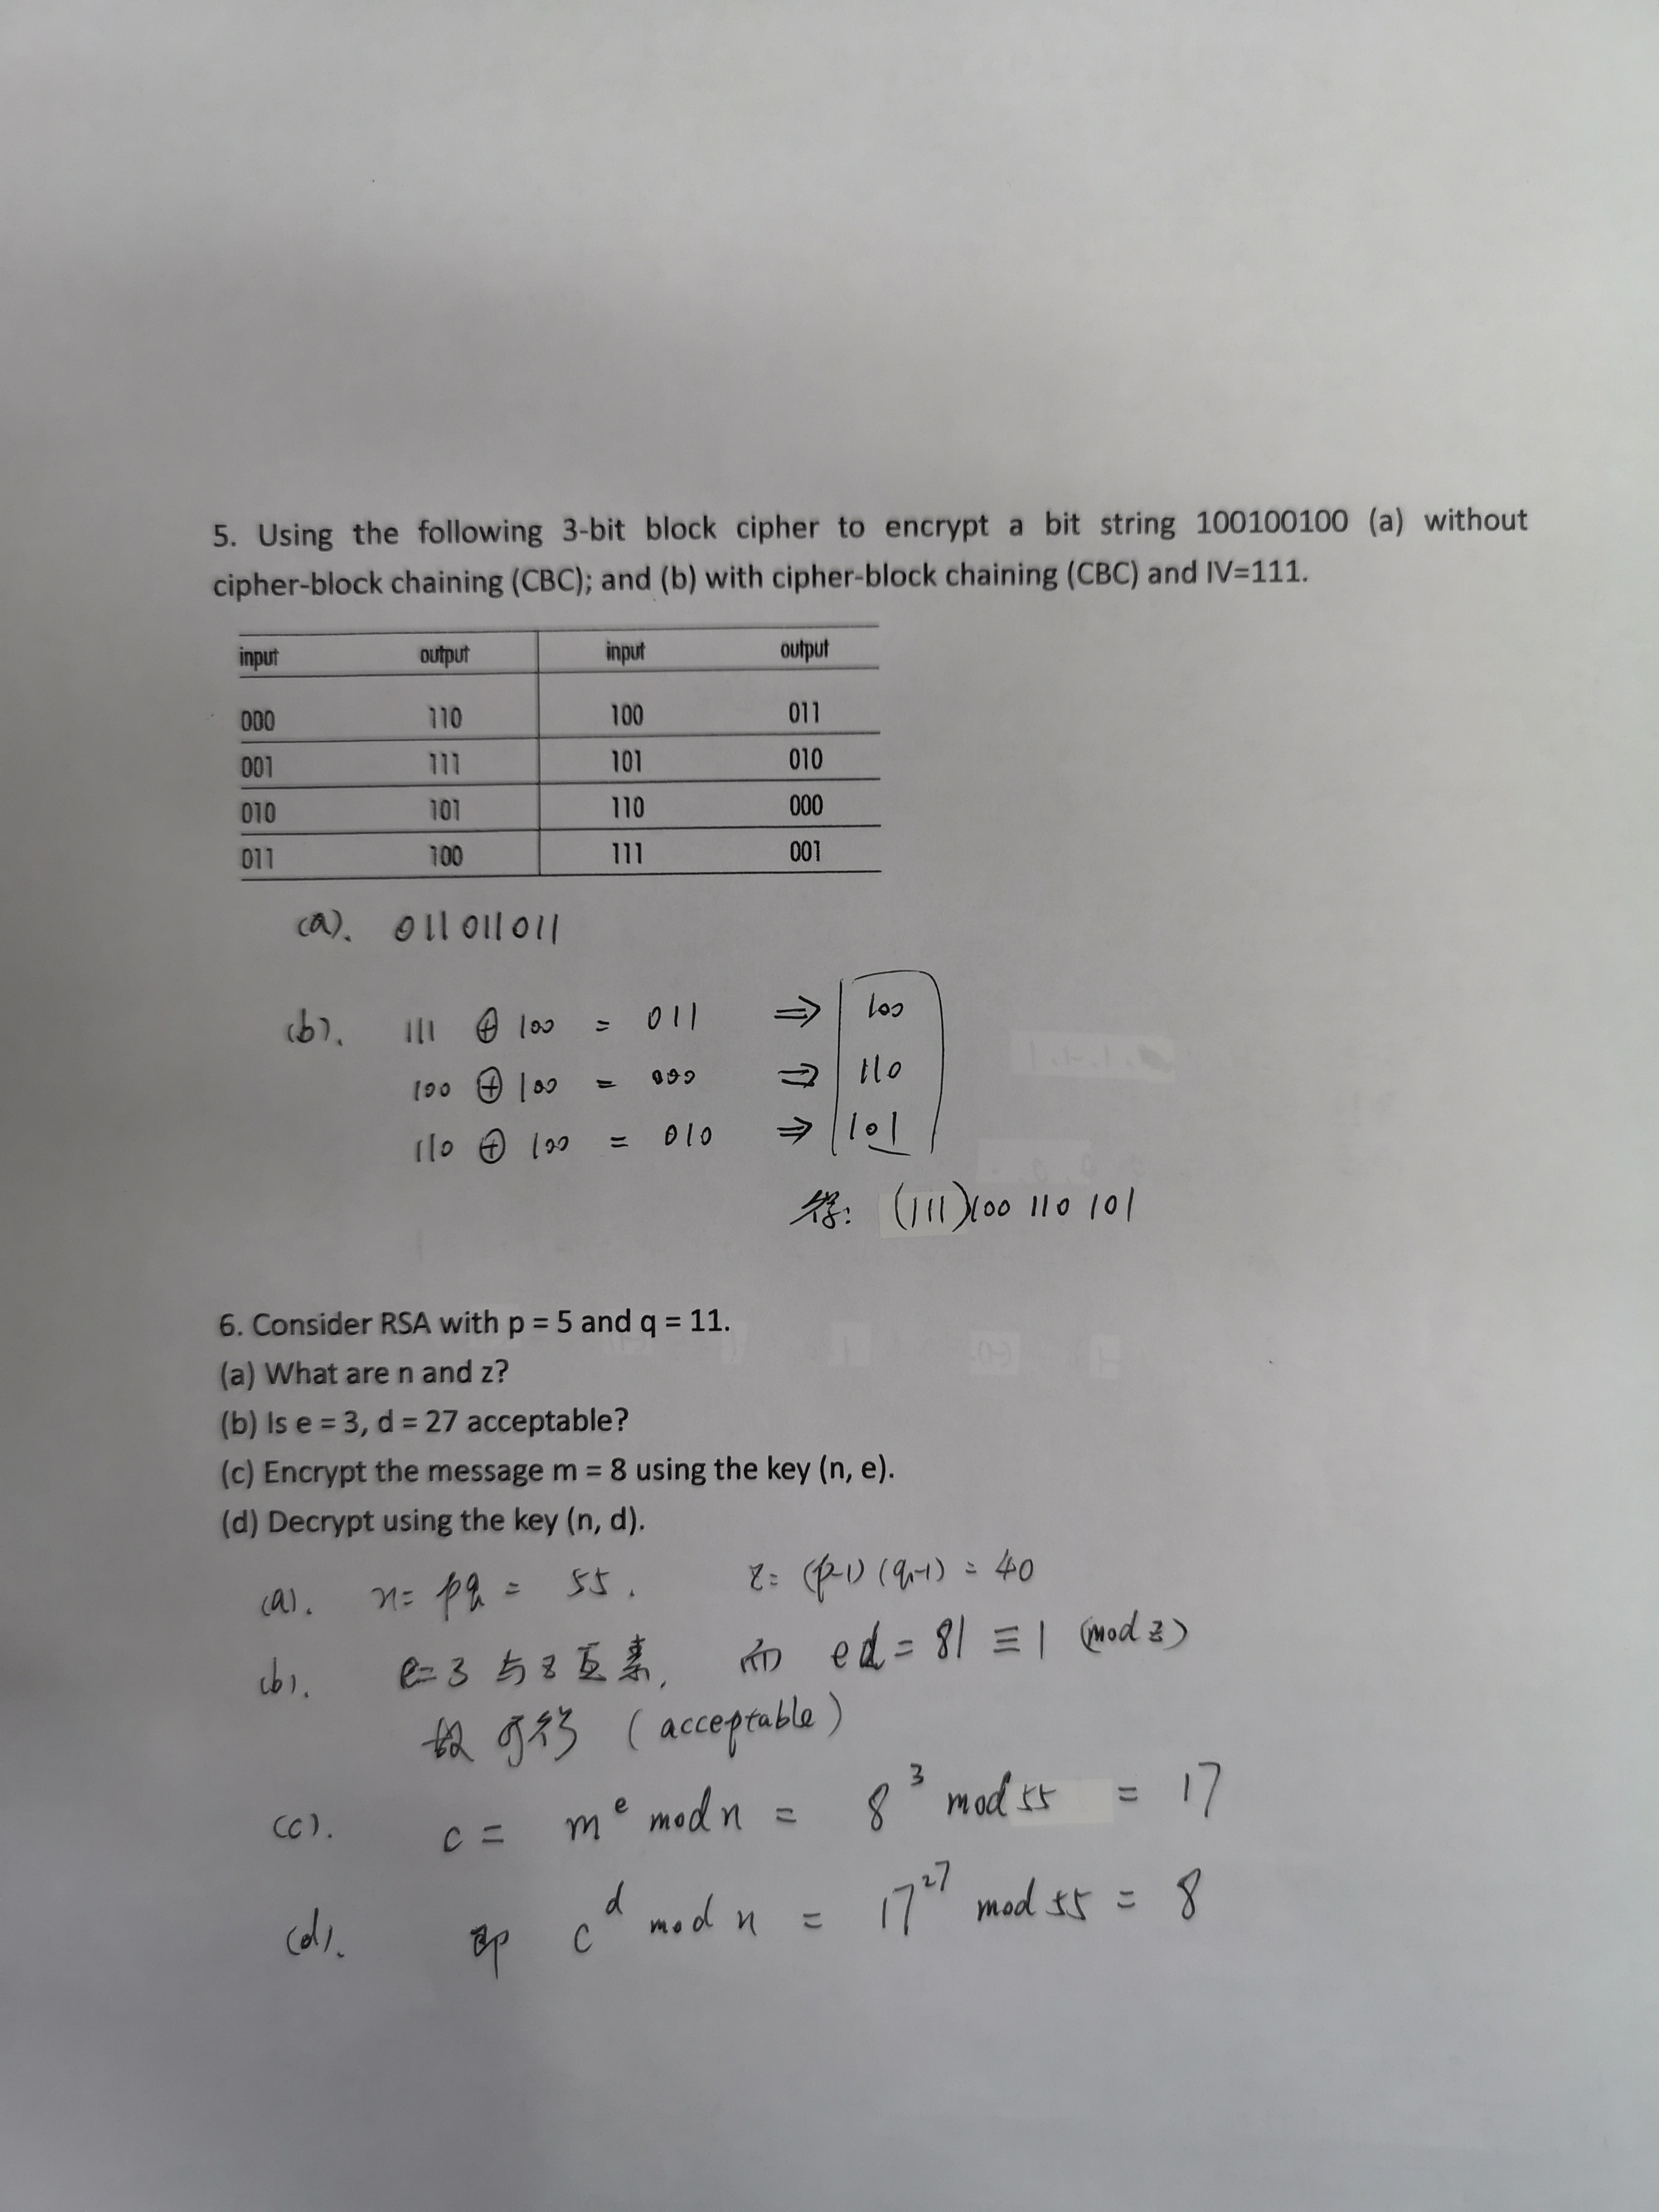 5. Using the following 3-bit block cipher to encrypt a bit string 100100100 (a) without
cipher-block chaining (CBC); and (b) with cipher-block chaining (CBC) and IV=111.
input output input output
000 110 100 011
001 111 101 010
010 101 110 000
011 100 111 001
(a). 011 011 011
(b). 111 ⊕ 100 = 011 ⇒ 100
100 ⊕ 100 = 000 ⇒ 110
110 ⊕ 100 = 010 ⇒ 101
得: (111)100 110 101
6. Consider RSA with p = 5 and q = 11.
(a) What are n and z?
(b) Is e = 3, d = 27 acceptable?
(c) Encrypt the message m = 8 using the key (n, e).
(d) Decrypt using the key (n, d).
(a). n= pq = 55. z= (p-1)(q-1) = 40
(b). e=3 与 z 互素, 而 ed = 81 ≡ 1 (mod z)
故 可行 (acceptable)
(c). c = m^e mod n = 8^3 mod 55 = 17
(d). 即 c^d mod n = 17^27 mod 55 = 8